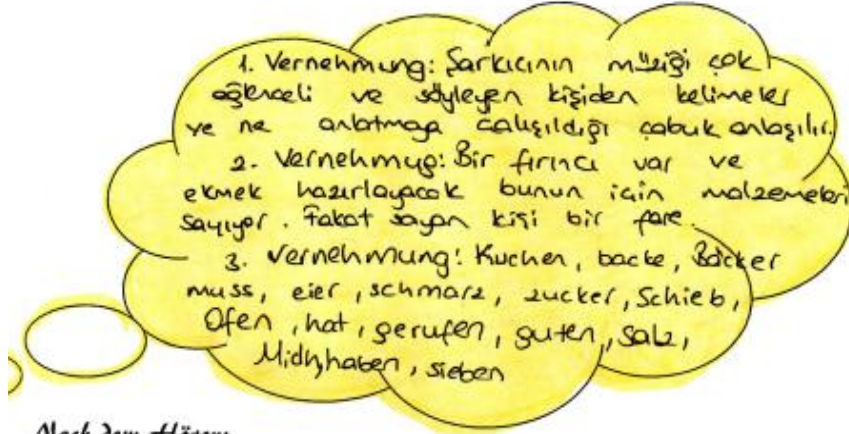 1. Vernehmung: Şarkıcının müziği çok
eğlenceli ve söyleyen kişiden kelimeler
ve ne anlatmaya çalışıldığı çabuk anlaşılır.
2. Vernehmug: Bir fırıncı var ve
ekmek hazırlayacak bunun için malzemeleri
sayıyor. Fakat sayan kişi bir fare.
3. Vernehmung: Kuchen, backe, Bäcker
muss, eier, schmarz, zucker, Schieb,
Ofen, hat, gerufen, guten, Salz,
haben, sieben
Nach dem Hören